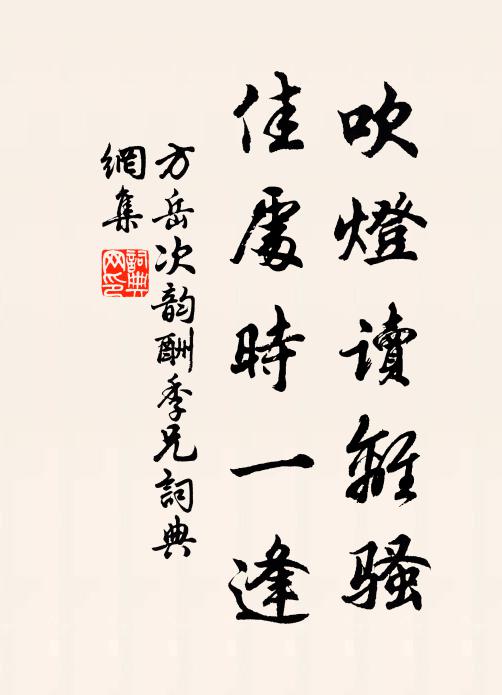 吹燈讀離骚
佳處時一逢
方岳次韵酬季兄詞典
網集
詞典
网印